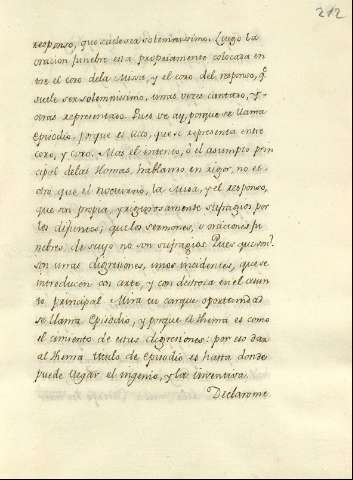 212
responso, que suele ser solemnissimo. Luego la
oracion funebre esta propriamente colocada en
tre el coro de la Missa, y el coro del responso, q̃
suele ser solemnissimo, unas veces cantado, y o-
tras representado. Pues ve ay, porque se llama
Episodio, porque es acto, que se representa entre
coro, y coro. Mas el intento, ò el assumpto prin
cipal de las Honras hablando en rigor, no es
otro que el nocturno, la Missa, y el responso,
que son propia, y rigurosamente sufragios por
los difuntos; que los sermones, ò oraciones fu
nebres, de suyo no son sufragios. Pues que son?
Son unas digressiones, unos incidentes, que se
introducen con arte, y con destreza en el asun
to principal. Mira tu con que oportunidad
se llama Episodio, y porque el thema es como
el cimiento de estas digressiones: por eso dar
al thema titulo de Episodio es hasta donde
puede llegar el ingenio, y la inventiva.
Declarome